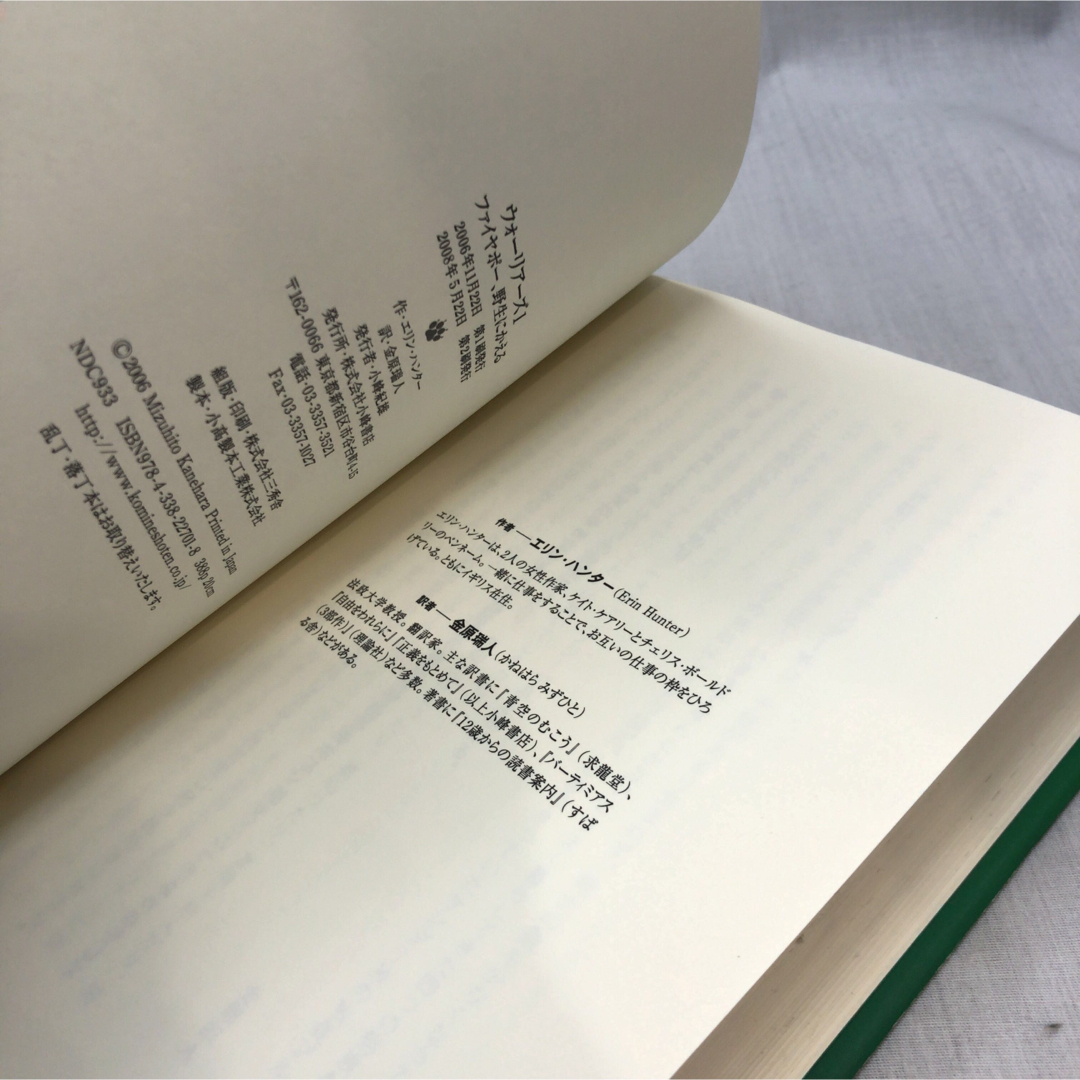 ウォーリアーズ1
ファイヤポー、野生にかえる
2006年11月22日 第1刷発行
2008年5月22日 第2刷発行
作・エリン・ハンター
訳・金原瑞人
発行者・小峰紀雄
発行所・株式会社小峰書店
〒162-0066 東京都新宿区市谷台町4-15
電話・03-3357-3521
Fax・03-3357-1027
組版・印刷・株式会社三秀舎
製本・小髙製本工業株式会社
©2006 Mizuhito Kanehara Printed in Japan
NDC933 ISBN978-4-338-22701-8 388p 20cm
http://www.komineshoten.co.jp/
乱丁・落丁本はお取り替えいたします。
作者――エリン・ハンター(Erin Hunter)
エリン・ハンターは、2人の女性作家、ケイト・ケアリーとチェリス・ボールド
リーのペンネーム。一緒に仕事をすることで、お互いの仕事の枠をひろ
げている。ともにイギリス在住。
訳者――金原瑞人(かねはら みずひと)
法政大学教授。翻訳家。主な訳書に『青空のむこう』(求龍堂)、
『自由をわれらに』『正義をもとめて』(以上小峰書店)、『バーティミアス
(3部作)』(理論社)など多数。著書に『12歳からの読書案内』(すば
る舎)などがある。